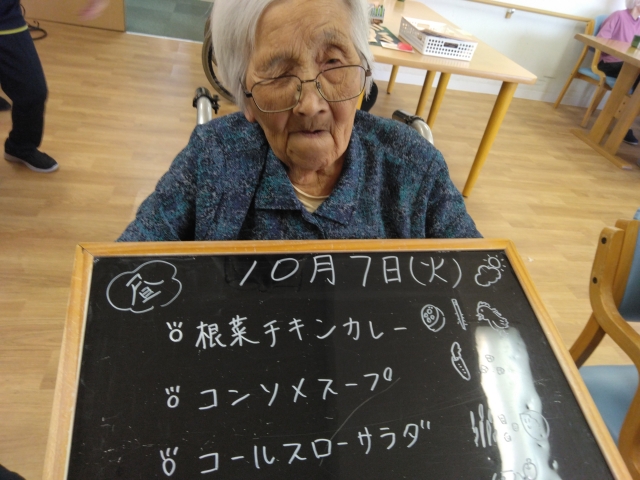 昼
10月7日(火)
根菜チキンカレー
コンソメスープ
コールスローサラダ